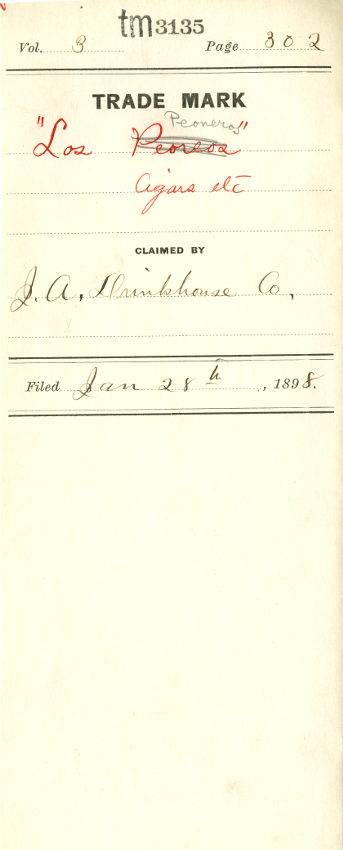 tm3135
Vol. 3 Page 302
TRADE MARK
Peoneros
"Los Peoreos"
Cigars etc
CLAIMED BY
J. A. Drinkhouse Co,
Filed Jan 28th, 1898.